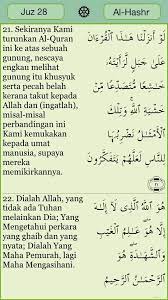 Juz 28
Al-Hashr
21. Sekiranya Kami
turunkan Al-Quran
ini ke atas sebuah
gunung, nescaya
engkau melihat
gunung itu khusyuk
serta pecah belah
kerana takut kepada
Allah dan (ingatlah),
misal-misal
perbandingan ini
Kami kemukakan
kepada umat
manusia, supaya
mereka
memikirkannya.
لَوْ أَنزَلْنَا هَٰذَا الْقُرْءَانَ
عَلَىٰ جَبَلٍ لَّرَأَيْتَهُۥ
خَٰشِعًا مُّتَصَدِّعًا مِّنْ
خَشْيَةِ اللَّهِ ۚ وَتِلْكَ
الْأَمْثَٰلُ نَضْرِبُهَا
لِلنَّاسِ لَعَلَّهُمْ
يَتَفَكَّرُونَ
22. Dialah Allah, yang
tidak ada Tuhan
melainkan Dia; Yang
Mengetahui perkara
yang ghaib dan yang
nyata; Dialah Yang
Maha Pemurah, lagi
Maha Mengasihani.
هُوَ اللَّهُ الَّذِى لَآ إِلَٰهَ
إِلَّا هُوَ ۖ عَٰلِمُ الْغَيْبِ
وَالشَّهَٰدَةِ ۖ هُوَ
الرَّحْمَٰنُ الرَّحِيمُ